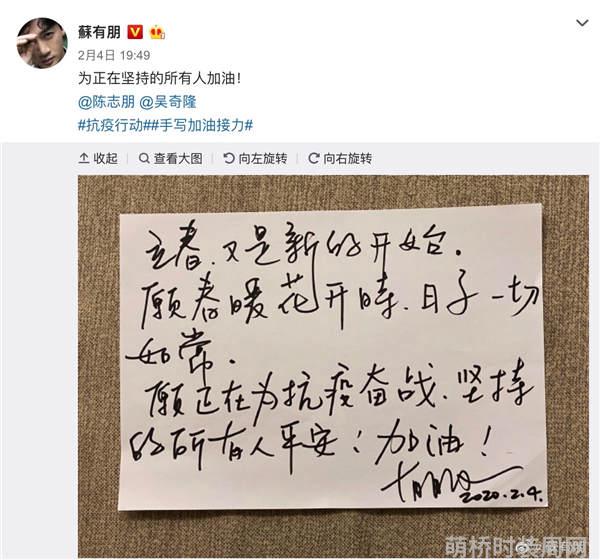 蘇有朋
2月4日 19:49
为正在坚持的所有人加油!
@陈志朋 @吴奇隆
#抗疫行动##手写加油接力#
收起 查看大图 向左旋转 向右旋转
立春,又是新的开始.
愿春暖花开時.日子一切
如常.
愿正在为抗疫奋战.坚持
的所有人平安!加油!
2020.2.4.
萌桥时装周网